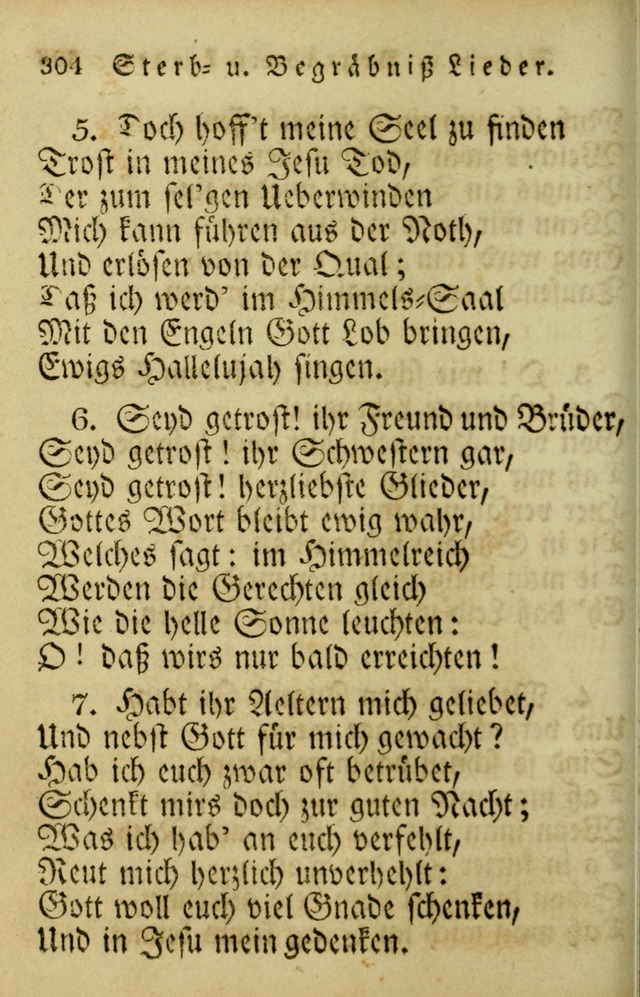 304 Sterb- u. Begräbniß Lieder.
5. Doch hoff't meine Seel zu finden
Trost in meines Jesu Tod,
Der zum sel'gen Ueberwinden
Mich kann führen aus der Noth,
Und erlösen von der Qual;
Daß ich werd' im Himmels-Saal
Mit den Engeln Gott Lob bringen,
Ewigs Hallelujah singen.
6. Seyd getrost! ihr Freund und Brüder,
Seyd getrost! ihr Schwestern gar,
Seyd getrost! herzliebste Glieder,
Gottes Wort bleibt ewig wahr,
Welches sagt: im Himmelreich
Werden die Gerechten gleich
Wie die helle Sonne leuchten:
O! daß wirs nur bald erreichten!
7. Habt ihr Aeltern mich geliebet,
Und nebst Gott für mich gewacht?
Hab ich euch zwar oft betrübet,
Schenkt mirs doch zur guten Nacht;
Was ich hab' an euch verfehlt,
Reut mich herzlich unverhehlt:
Gott woll euch viel Gnade schenken,
Und in Jesu mein gedenken.